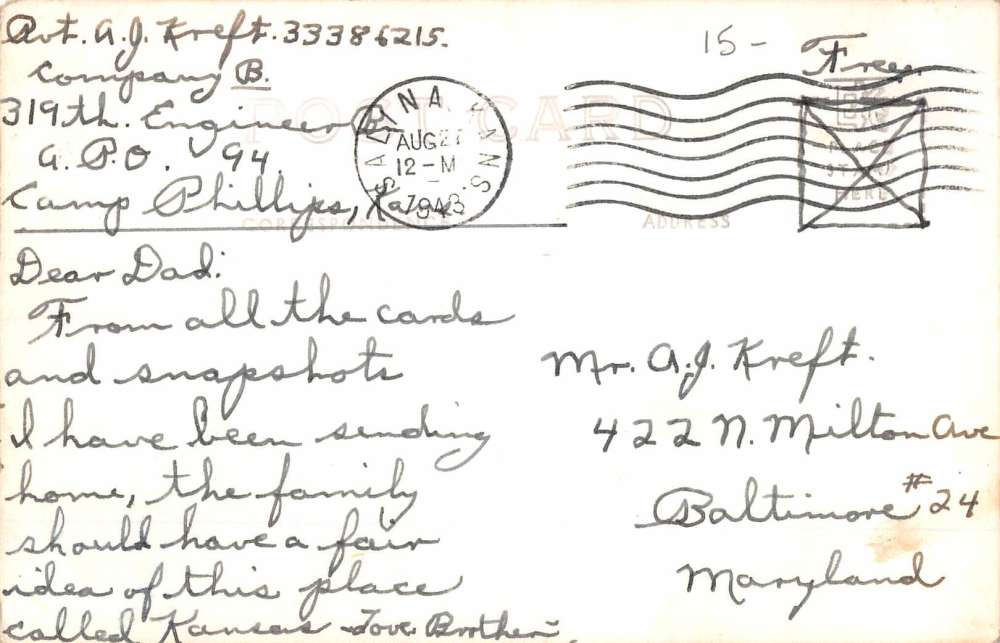 Pvt. A.J. Kreft. 33386215.
Company B.
319th. Engineer Bn.
A.P.O. 94
Camp Phillips, Kas.
15-
Free
SALINA
AUG 27
12-M
1943
KANS
POST CARD
PLACE
STAMP
HERE
CORRESPONDENCE
ADDRESS
Dear Dad:
From all the cards
and snapshots
I have been sending
home, the family
should have a fair
idea of this place
called Kansas Love Brother
Mr. A.J. Kreft.
422 N. Milton Ave
Baltimore #24
Maryland